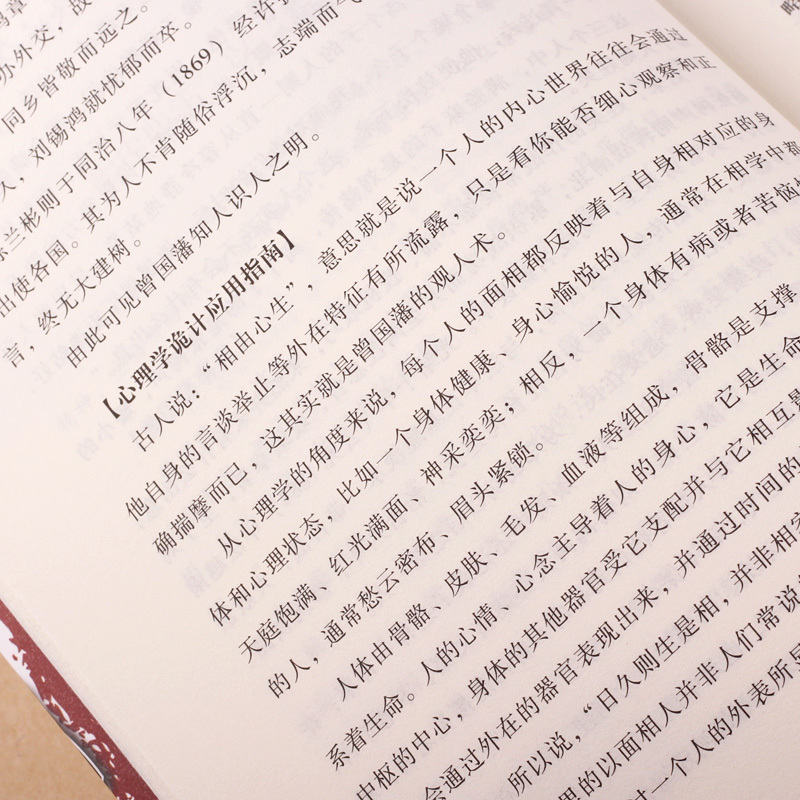 办外交，故
同乡皆敬而远之。
人，刘锡鸿就忧郁而卒。
兰彬则于同治八年（1869）经许
出使各国。其为人不肯随俗浮沉，志端而气
言，终无大建树。
由此可见曾国藩知人识人之明。
【心理学诡计应用指南】
古人说：“相由心生”，意思就是说一个人的内心世界往往会通过
他自身的言谈举止等外在特征有所流露，只是看你能否细心观察和正
确揣摩而已，这其实就是曾国藩的观人术。
从心理学的角度来说，每个人的面相都反映着与自身相对应的身
体和心理状态，比如一个身体健康、身心愉悦的人，通常在相学中都
天庭饱满、红光满面、神采奕奕；相反，一个身体有病或者苦恼
的人，通常愁云密布、眉头紧锁。
人体由骨骼、皮肤、毛发、血液等组成，骨骼是支撑
系着生命。人的心情、心念主导着人的身心，它是生命
中枢的中心，身体的其他器官受它支配并与它相互
会通过外在的器官表现出来，并通过时间的
所以说，“日久则生是相，并非相
里的以面相人并非人们常说
一个人的外表所显